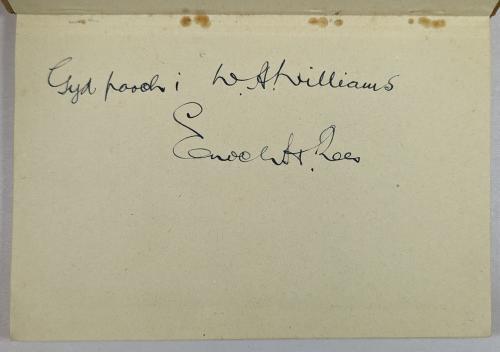 Gyd parch i W. A. Williams
Enoch H. Rees